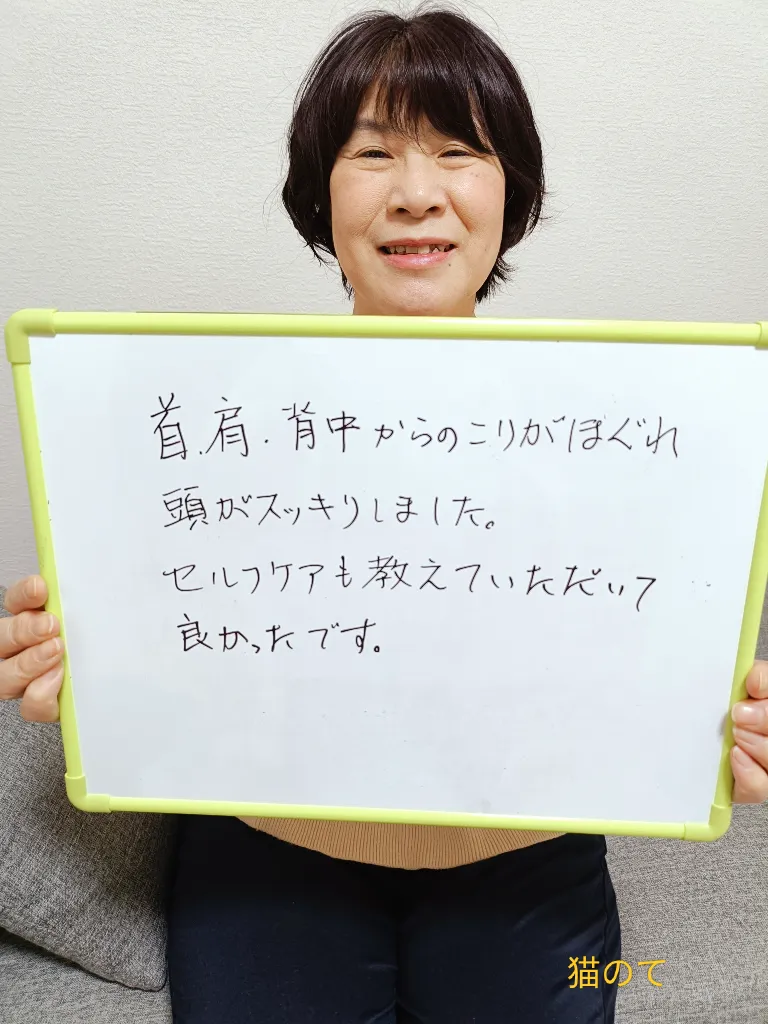 首、肩、背中からのこりがほぐれ
頭がスッキリしました。
セルフケアも教えていただいて
良かったです。
猫のて